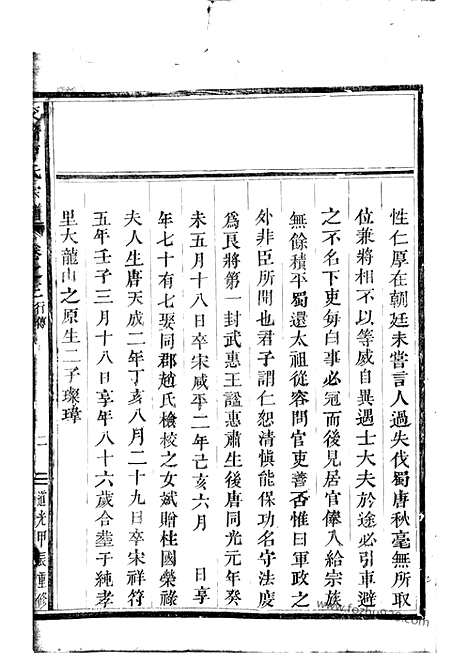 性仁厚在朝廷未嘗言人過失伐蜀唐秋毫無所取
位兼將相不以等威自異遇士大夫於途必引車避
之不名下吏每白事必冠而後見居官俸入給宗族
無餘積平蜀還太祖從容問官吏善否惟曰軍政之
外非臣所聞也君子謂仁恕清慎能保功名守法度
爲良將第一封武惠王謚惠肅生後唐同光元年癸
未五月十八日卒宋咸平二年己亥六月 日享
年七十有七娶同郡趙氏檢校之女斌贈柱國榮祿
夫人生唐天成二年丁亥八月二十九日卒宋祥符
五年壬子三月十八日享年八十六歲合塟于純孝
里大龍山之原生二子璨瑋
氏宗譜 卷之 行傳 二 道光甲辰重修
www.fezhup.com